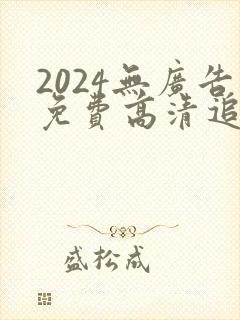 2024無廣告
免費高清追
盛松成